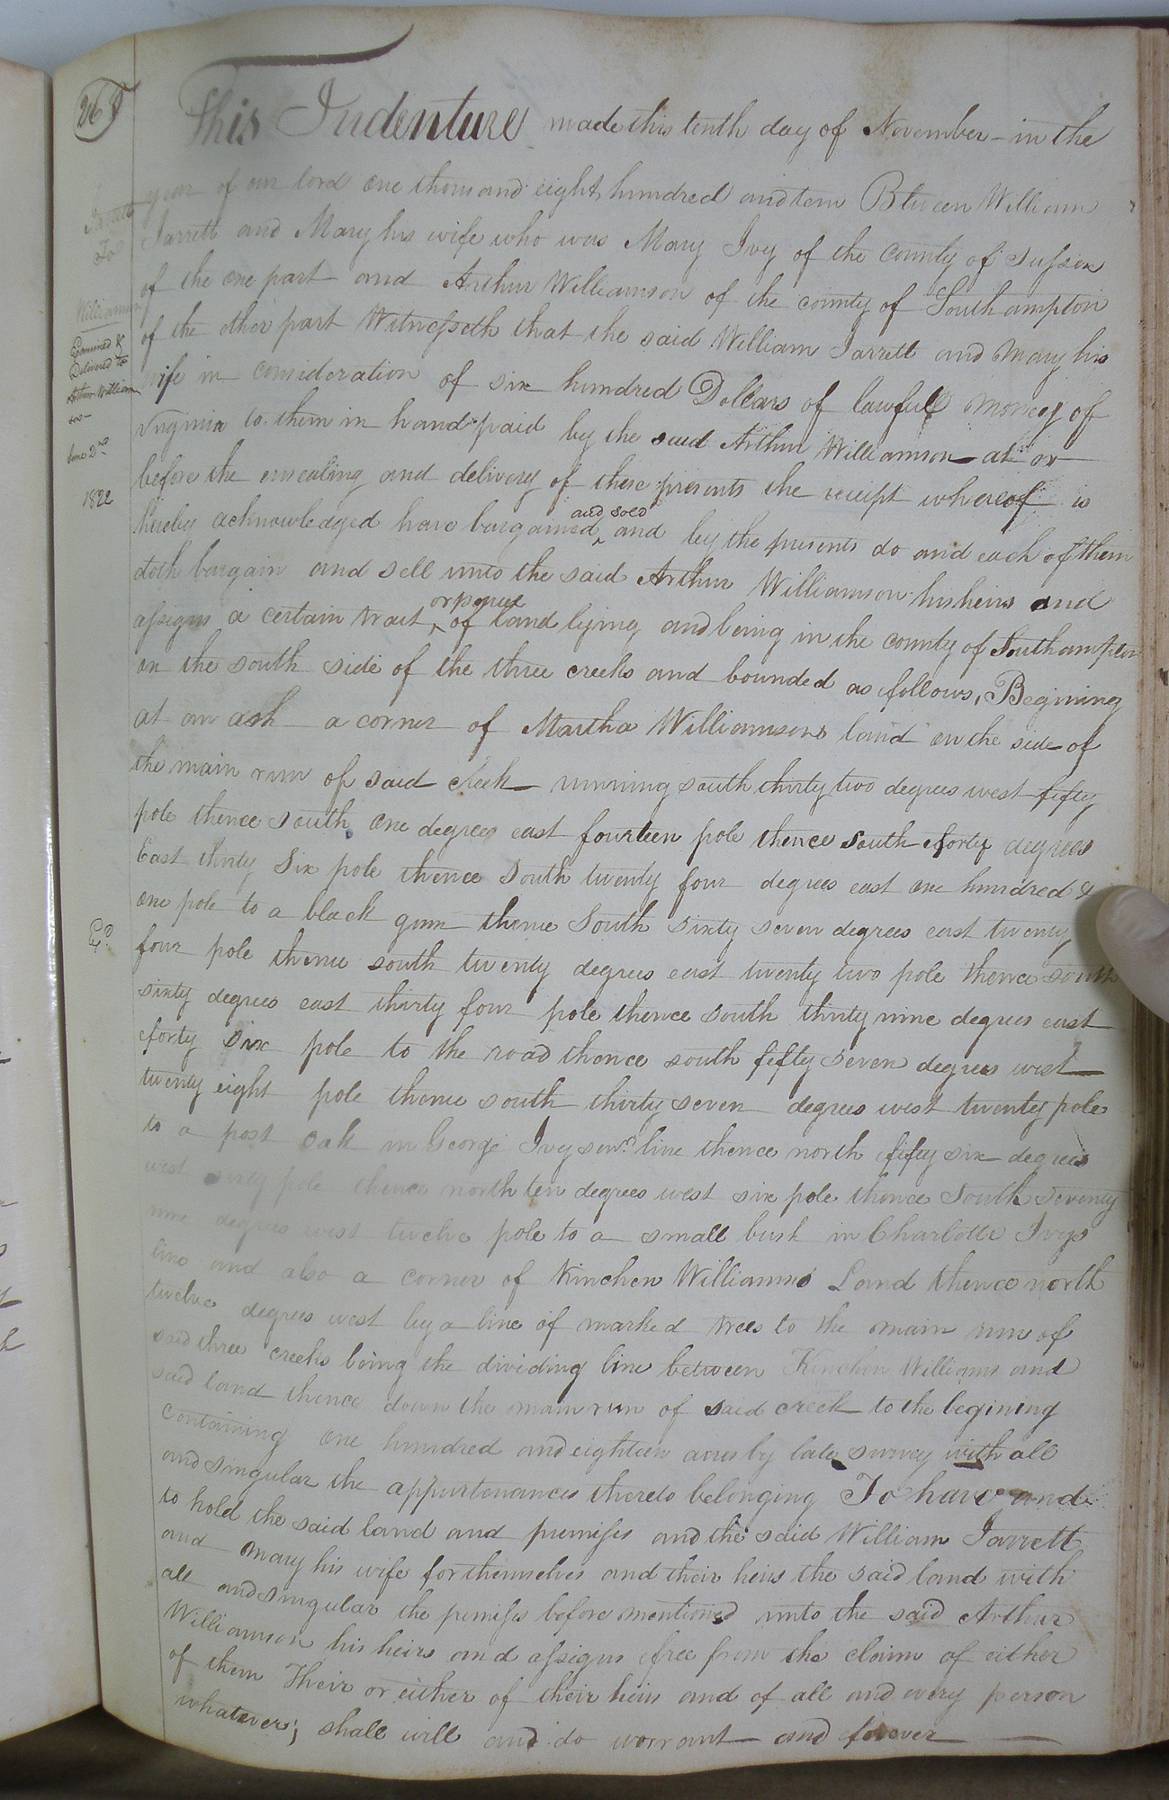 268
This Indenture made this tenth day of November in the
year of our lord one thousand eight hundred and ten Btween William
Jarrett and Mary his wife who was Mary Ivy of the county of Sussex
of the one part and Arthur Williamson of the county of Southampton
of the other part Witnesseth that the said William Jarrett and Mary his
wife in consideration of six hundred Dollars of lawfull money of
Virginia to them in hand paid by the said Arthur Williamson at or
before the ensealing and delivery of these presents the receipt whereof is
hereby acknowledged have bargained and sold and by the presents do and each of them
doth bargain and sell unto the said Arthur Williamson his heirs and
assigns a certain tract or parcel of land lying and being in the county of Southampton
on the south side of the three creeks and bounded as follows, Begining
at an ash a corner of Martha Williamsons land on the side of
the main run of said creek running south thirty two degrees west fifty
pole thence south one degrees east fourteen pole thence south forty degrees
East thirty Six pole thence South twenty four degrees east one hundred &
one pole to a black gum thence South sixty seven degrees east twenty
four pole thence south twenty degrees east twenty two pole thence south
sixty degrees east thirty four pole thence south thirty nine degrees east
forty six pole to the road thence south fifty seven degrees west
twenty eight pole thence south thirty seven degrees west twenty pole
to a post oak in George Ivy senr. line thence north fifty six degrees
west sixty pole thence north ten degrees west six pole thence South Seventy
nine degrees west twelve pole to a small bush in Charlotte Ivys
line and also a corner of Kinchen Williams Land thence north
twelve degrees west by a line of marked trees to the main run of
said three creeks being the dividing line between Kinchen Williams and
said land thence down the main run of said creek to the begining
Containing one hundred and eighteen acres by late survey with all
and singular the appurtenances thereto belonging To have and
to hold the said land and premises and the said William Jarrett
and Mary his wife for themselves and their heirs the said land with
all and singular the premises before mentioned unto the said Arthur
Williamson his heirs and assigns free from the claim of either
of them Their or either of their heirs and of all and every person
whatever; shall will and do warrant and forever
Jarrett
To
Williamson
Examined &
Delivered to
Arthur William
son
June 2nd
1822